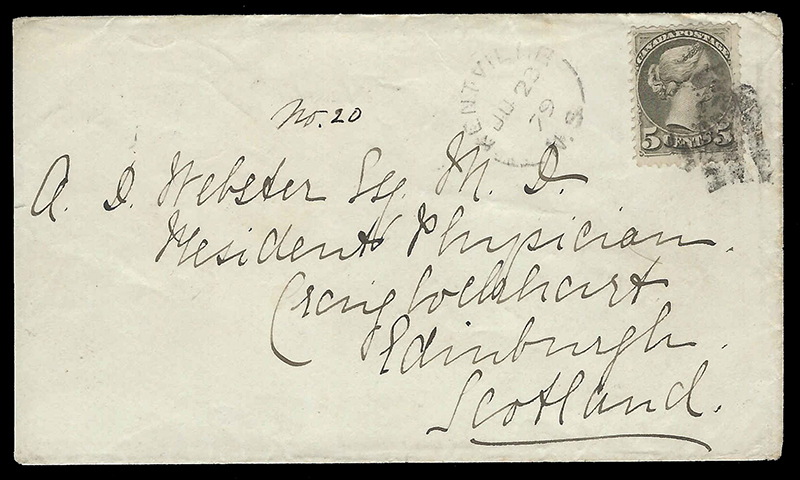 KENTVILLE
JU 23
79
N.S
CANADA POSTAGE
5 CENTS 5
No. 20
A. D. Webster Esq. M. D.
Resident Physician.
Craiglockhart
Edinburgh.
Scotland.